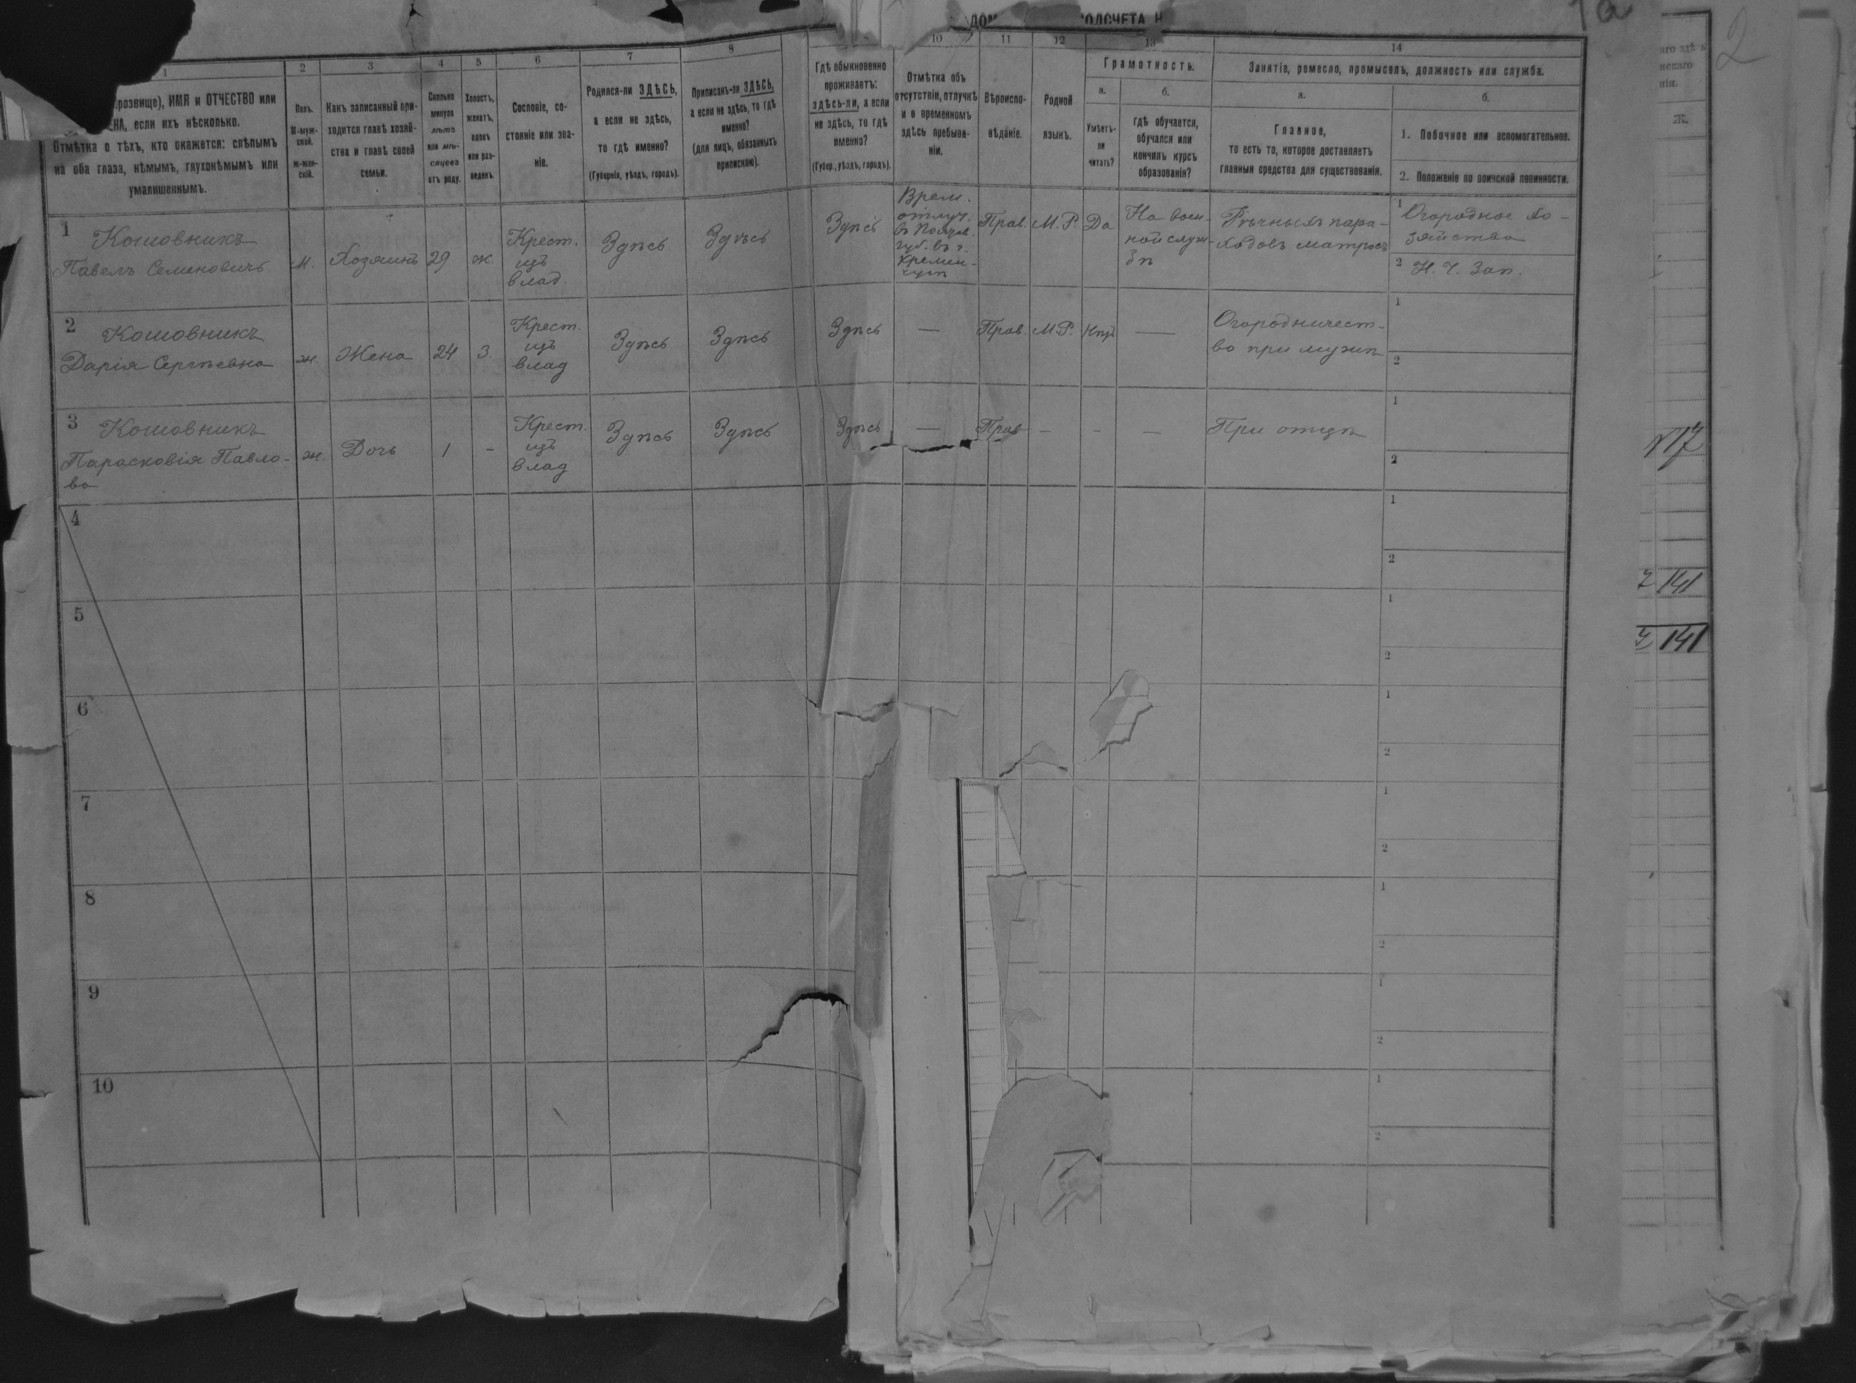 1а
2
1 2 3 4 5 6 7 8 10 11 12 13 14
розвище), ИМЯ и ОТЧЕСТВО или
если ихъ нѣсколько.
Отмѣтка о тѣхъ, кто окажется: слѣпымъ
на оба глаза, нѣмымъ, глухонѣмымъ или
умалишеннымъ.
Полъ.
М-муж-
ской.
Ж-жен-
скій.
Какъ записанный при-
ходится главѣ хозяй-
ства и главѣ своей
семьи.
Сколько
минуло
лѣтъ
или мѣ-
сяцевъ
отъ роду.
Холостъ,
женатъ,
вдовъ
или раз-
веденъ.
Сословіе, со-
стояніе или зва-
ніе.
Родился-ли ЗДѢСЬ,
а если не здѣсь,
то гдѣ именно?
(Губернія, уѣздъ, городъ).
Приписанъ-ли ЗДѢСЬ,
а если не здѣсь, то гдѣ
именно?
(для лицъ, обязанныхъ
припискою).
Гдѣ обыкновенно
проживаетъ:
здѣсь-ли, а если
не здѣсь, то гдѣ
именно?
(Губер., уѣздъ, городъ).
Отмѣтка объ
отсутствіи, отлучкѣ
и о временномъ
здѣсь пребыва-
ніи.
Вѣроиспо-
вѣданіе.
Родной
языкъ.
Грамотность.
а.
Умѣетъ-
ли
читать?
б.
гдѣ обучается,
обучался или
кончилъ курсъ
образованія?
Занятіе, ремесло, промыселъ, должность или служба.
а.
Главное,
то есть то, которое доставляетъ
главныя средства для существованія.
б.
1. Побочное или вспомогательное.
2. Положеніе по воинской повинности.
1 Кошовникъ
Павелъ Семеновичъ
м.
Хозяинъ
29
ж.
Крест.
изъ
влад.
Здѣсь
Здѣсь
Здѣсь
Врем.
отлуч.
въ Полтав.
губ. въ г.
Кремен-
чугѣ
Прав.
М. Р.
Да
На воен-
ной служ-
бѣ
Рѣчныхъ паро-
ходовъ матросъ
1 Огородное хо-
зяйство
2 Н. Ч. Зап.
2 Кошовникъ
Дарія Сергѣевна
ж.
Жена
24
З.
Крест.
изъ
влад
Здѣсь
Здѣсь
Здѣсь
—
Прав.
М. Р.
Нѣт
—
Огородничест-
во при мужѣ
1
2
3 Кошовникъ
Парасковія Павло-
ва
ж.
Дочь
1
-
Крест.
изъ
влад
Здѣсь
Здѣсь
Здѣсь
—
Прав
-
-
—
При отцѣ
1
2
4
1
2
5
1
2
6
1
2
7
1
2
8
1
2
9
1
2
10
1
2
Ж.
117
141
141